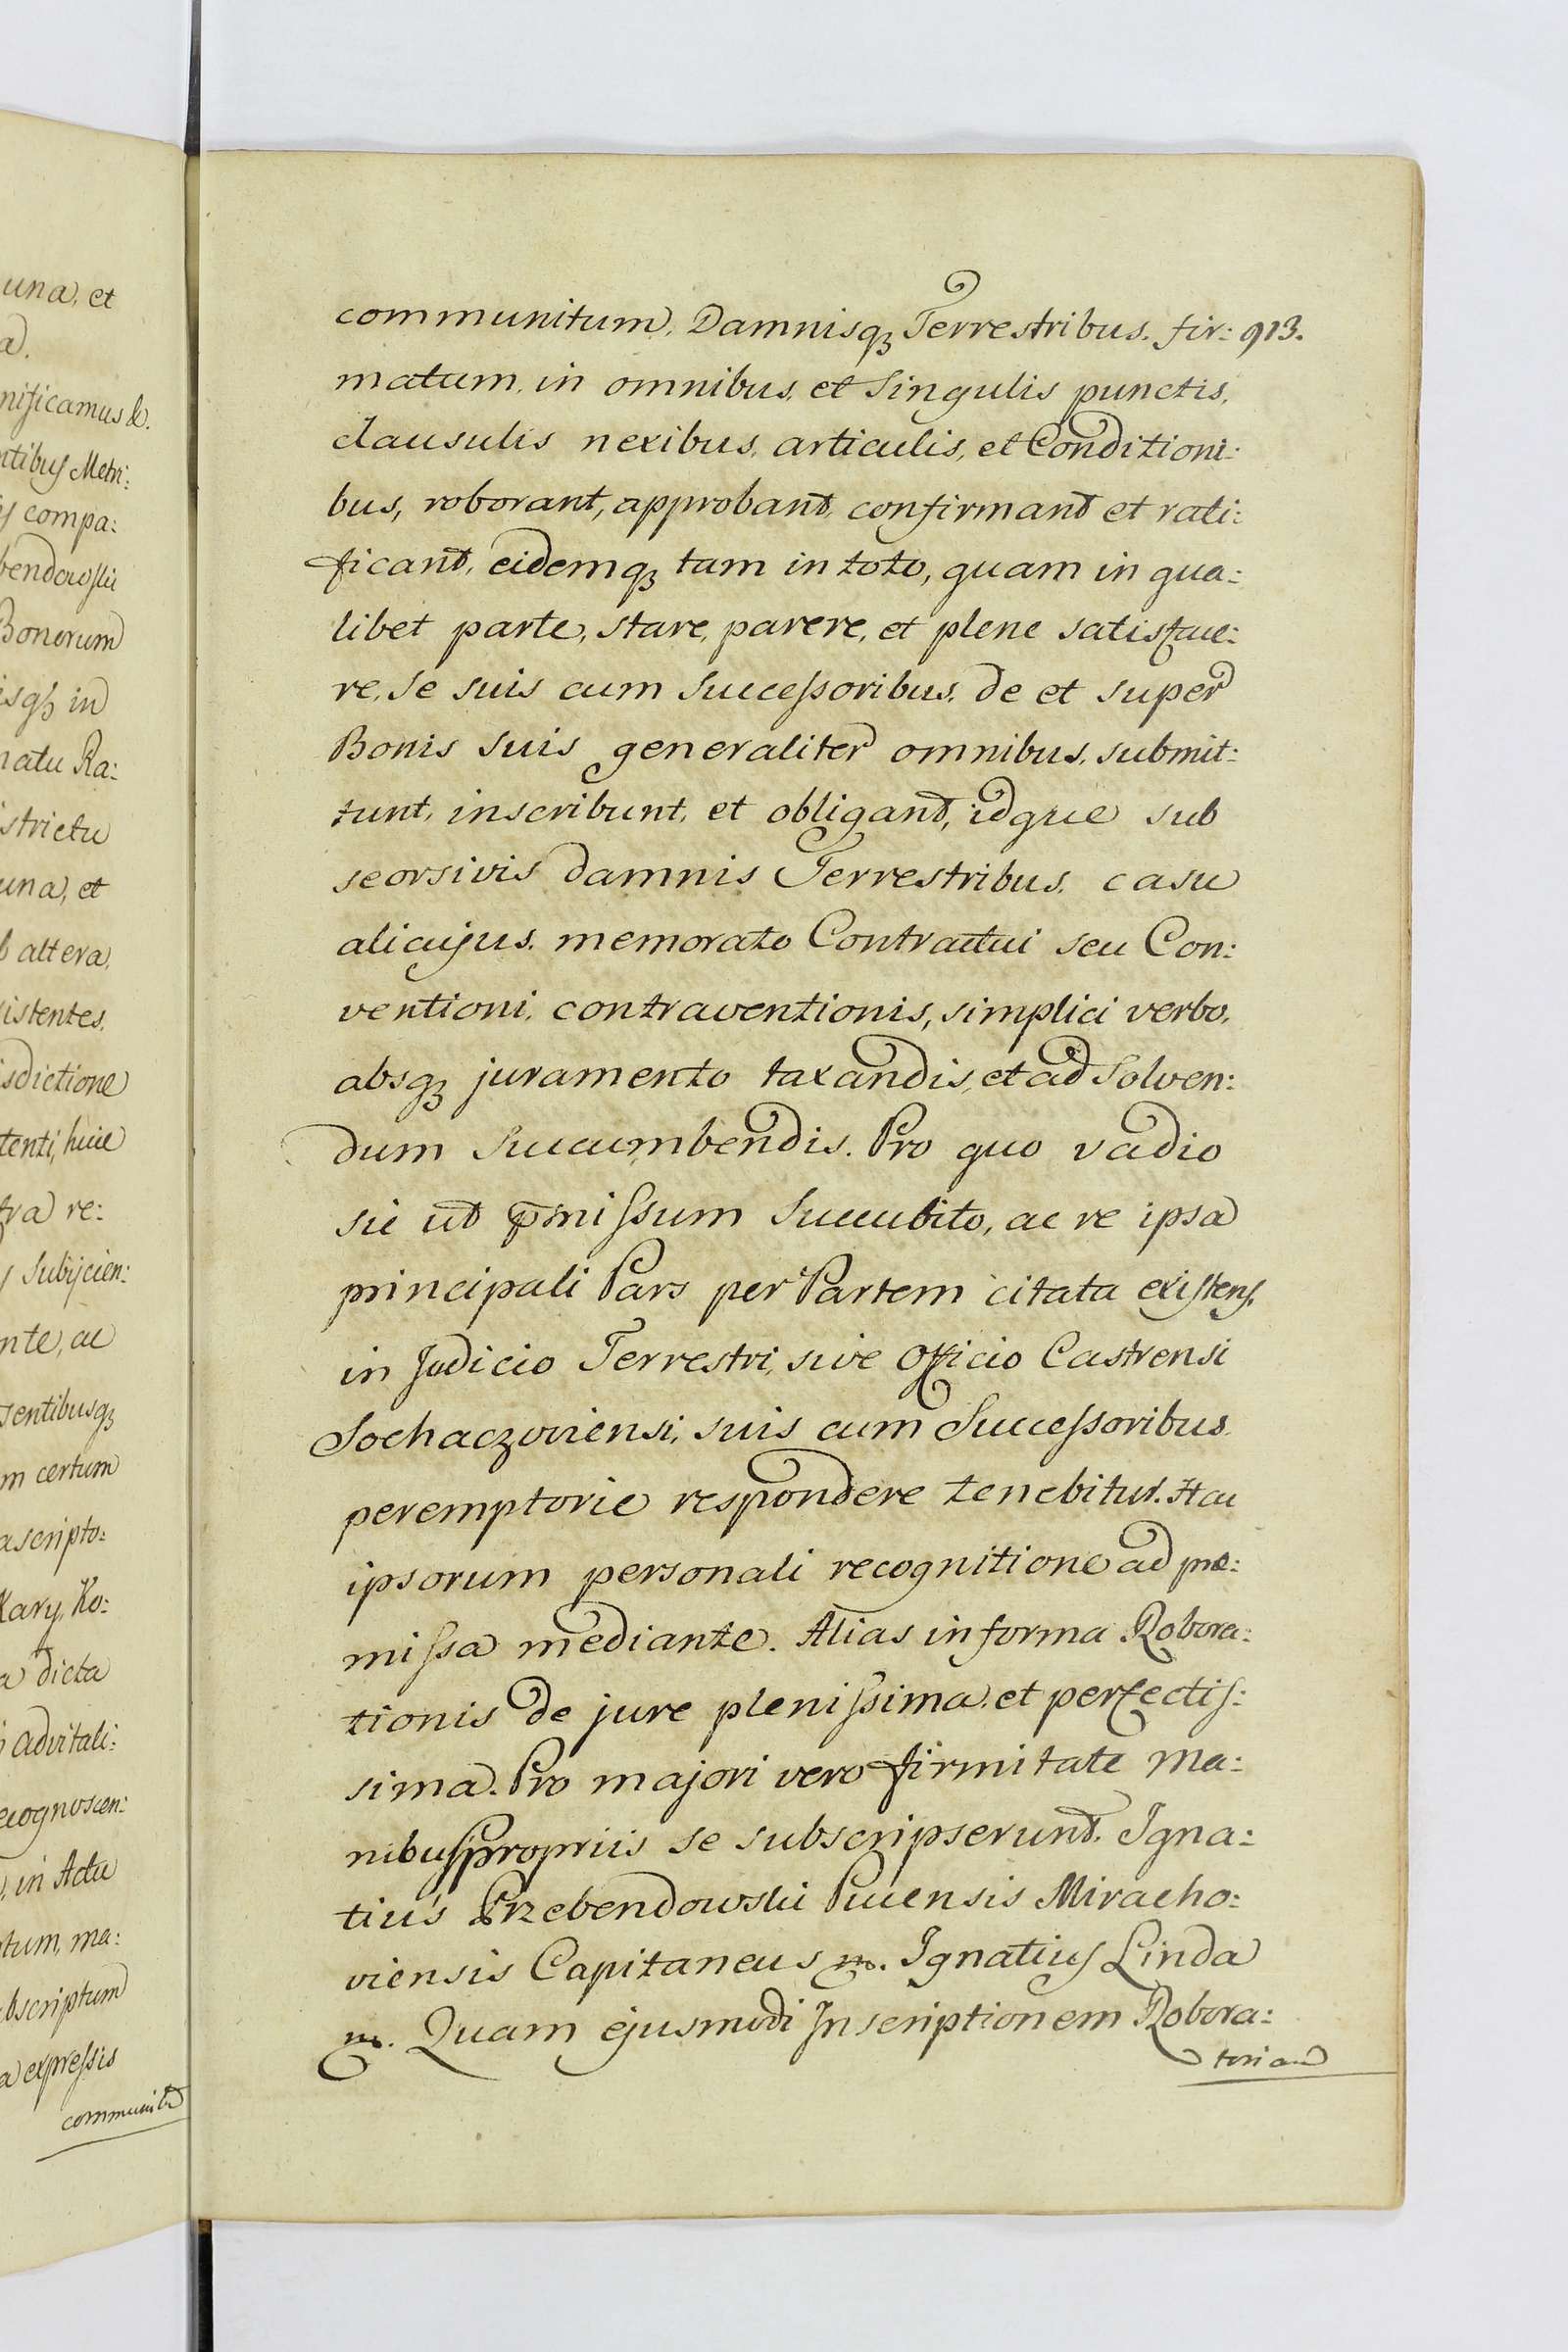 una, et
a.
nificamus &.
ntibus Metri:
s compa:
bendowski
Bonorum
isq3 in
natu Ra:
strictu
una, et
b altera,
istentes,
isdictione
tenti, huic
tra re:
s Subijcien:
nte, ac
sentibusq3
m certum
ascripto:
Kary, Ko:
a dicta
advitali:
ecognoscen:
, in Acta
tum, ma:
bscriptum
a expressis
communitu
communitum, Damnisq3 Terrestribus. fir: 913.
matum, in omnibus, et Singulis punctis,
clausulis nexibus, articulis, et Conditioni:
bus, roborant, approbant, confirmant et rati:
ficant, eidemq3 tam in toto, quam in qua:
libet parte, stare, parere, et plene satisface:
re, se suis cum Successoribus, de et super
Bonis suis generaliter omnibus, submit:
tunt, inscribunt, et obligant, idque sub
seorsivis damnis Terrestribus, casu
alicujus, memorato Contractui seu Con:
ventioni, contraventionis, simplici verbo,
absq3 juramento taxandis, et ad Solven:
dum Succumbendis. Pro quo vadio
sic ut p̄missum Succubito, ac re ipsa
principali Pars per Partem citata existens,
in Judicio Terrestri, sive Officio Castrensi
Sochaczoviensi, suis cum Successoribus
peremptorie respondere tenebitur. Hac
ipsorum personali recognitione ad præ:
missa mediante. Alias in forma Robora:
tionis de jure plenissima, et perfectis:
sima. Pro majori vero firmitate Ma:
nibus propriis se subscripserunt. Igna:
tius Przebendowski Pucensis Miracho:
viensis Capitaneus m. Ignatius Linda
m. Quam ejusmodi Inscriptionem Robora:
toriam